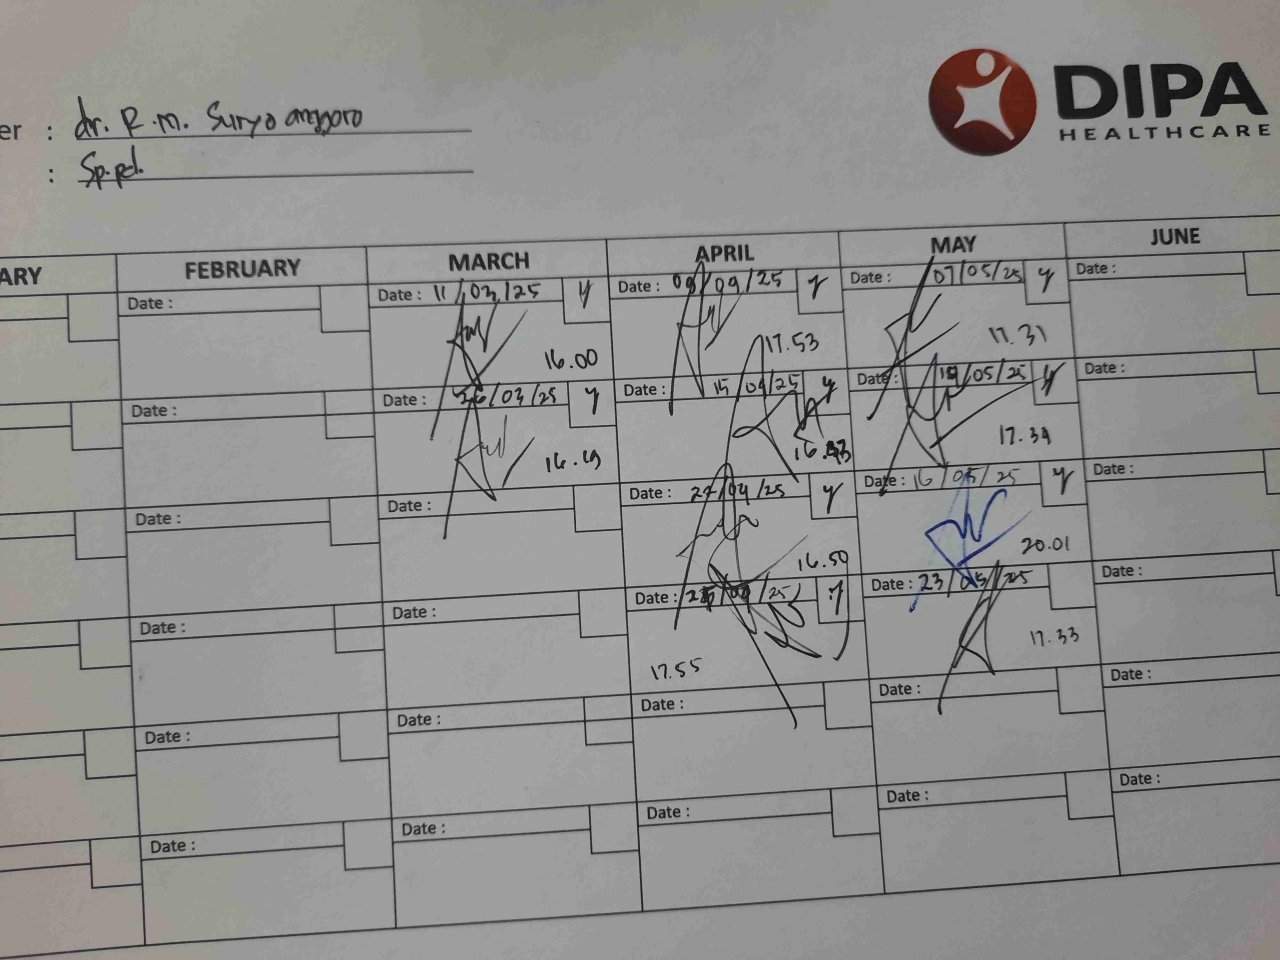 DIPA
HEALTHCARE
er : dr. R.M. Suryo anggoro
: Sp.pd.
ARY FEBRUARY MARCH APRIL MAY JUNE
Date : Date : 11/03/25 y Date : 09/09/25 y Date : 07/05/25 y Date :
16.00 17.53 17.31
Date : Date : 26/03/25 y Date : 15/04/25 y Date : /05/25 y Date :
16.49 16. 17.34
Date : Date : Date : 22/04/25 y Date : 16/05/25 y Date :
16.50 20.01
Date : Date : Date : /25 y Date : 23/05/25 Date :
17.55 17.33
Date : Date : Date : Date : Date :
Date : Date : Date : Date : Date :